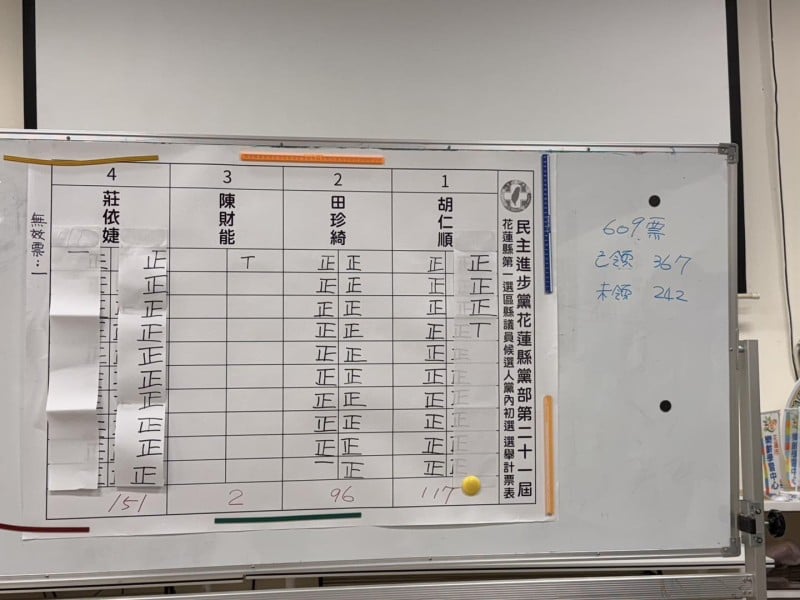 民主進步黨花蓮縣黨部第二十一屆
花蓮縣第一選區縣議員候選人黨內初選 選舉計票表
1
胡仁順
正正正丅
正正正正正正正正正正
117
2
田珍綺
正正正正正正正正正正
正正正正正正正正正一
96
3
陳財能
丅
2
4
莊依婕
正正正正正正正正正正
一
151
無效票:一
609票
已領 367
未領 242